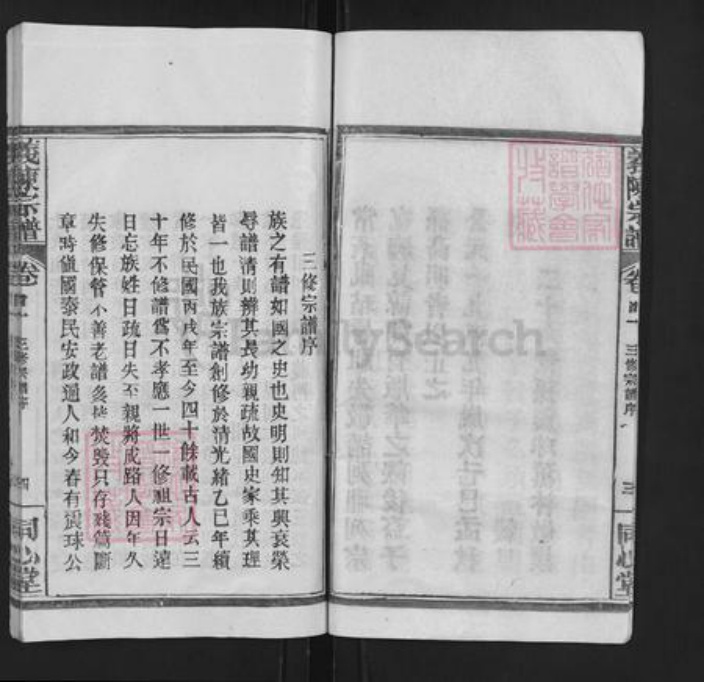 義陳宗譜
卷首一
三修宗譜序
三
同心堂
三修宗譜序
族之有譜如國之史也史明則知其興衰榮
辱譜清則辨其長幼親疏故國史家乘其理
皆一也我族宗譜創修於清光緒乙巳年續
修於民國丙戌年至今四十餘載古人云三
十年不修譜爲不孝應一世一修祖宗日遠
日忘族姓日疏日失至親將成路人因年久
失修保管不善老譜多於焚毀只存殘篇斷
章時值國泰民安政通人和今春有震球公
義陳宗譜
卷首一
三修宗譜序
四
同心堂
MySearch